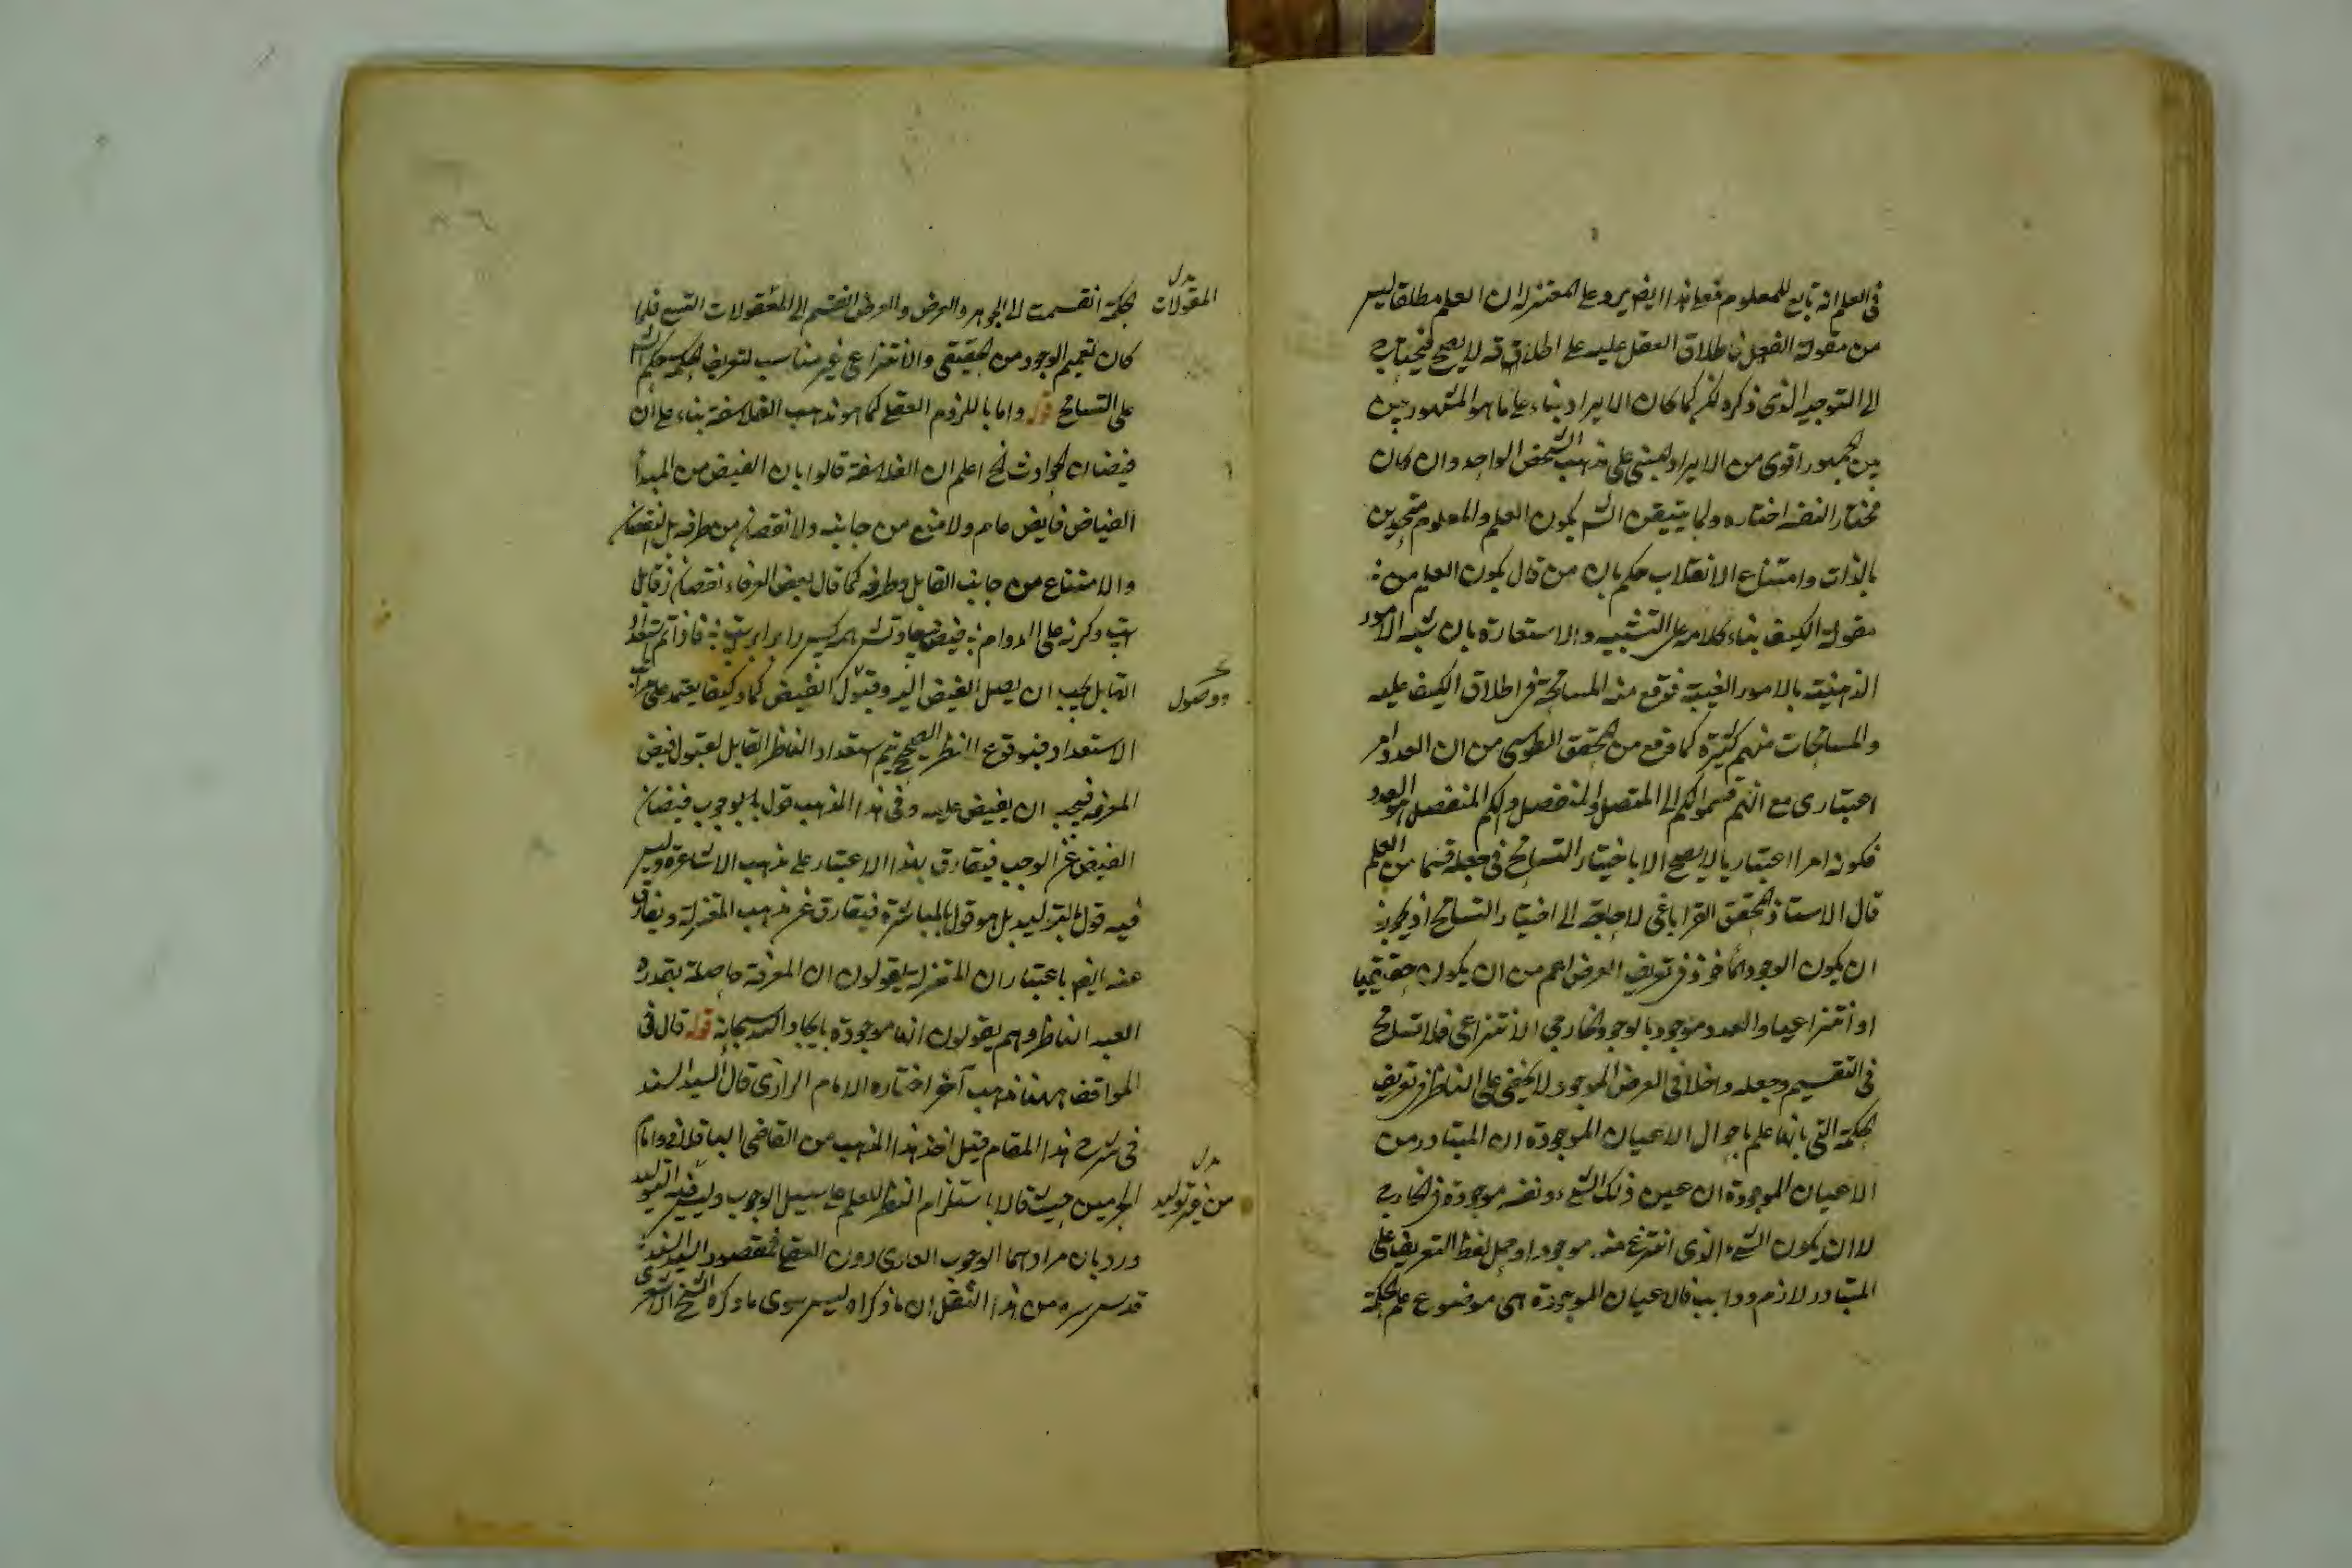 في العلم انه تابع للمعلوم فعلى هذا ايضا يرد على المعتزلة ان العلم مطلقا ليس
من مقولة الفعل فاطلاق الفعل عليه على اطلاقه لا يصح فيحتاج
الى التوجيه الذي ذكره لكن كما كان الايراد بناء على ما هو المشهور بين
بين الجمهور اقوى من الايراد المبني على مذهب الشخص الواحد وان كان
مختار النفسه اختاره ولما يتيقن الش بكون العلم والمعلوم متحدين
بالذات وامتناع الانقلاب حكم بان من قال بكون العلم من
مقولة الكيف بناء كلامه على التشبيه والاستعارة بان شبه الامور
الذهنية بالامور العينية فوقع منه المسامحة في اطلاق الكيف عليه
والمسامحات منهم كثيرة كما وقع من المحقق الطوسي من ان العدد امر
اعتباري مع انهم قسموا الكم الى المتصل والمنفصل والكم المنفصل هو العدد
فكونه امرا اعتباريا لا يصح الا باختيار التسامح في جعله قسما من العلم
قال الاستاذ المحقق القراباغي لا حاجة الى اختيار التسامح اذ يجوز
ان يكون الوجود المأخوذ في تعريف العرض اعم من ان يكون حقيقيا
او انتزاعيا والعدد موجود بالوجود الخارجي الانتزاعي فلا تسامح
في التقسيم وجعله داخلا في العرض الموجود لا يخفى على الناظر في تعريف
الحكمة التي بانها علم باحوال الاعيان الموجودة ان المتبادر من
الاعيان الموجودة ان عين ذلك الشيء ونفسه موجودة في الخارج
لا ان يكون الشيء الذي انتزع منه موجودا وحمل لفظ التعريف على
المتبادر لازم وواجب فالاعيان الموجودة هي موضوع علم الحكمة
المقولات
الحكمة انقسمت الى الجوهر والعرض والعرض انقسم الى المعقولات التسع فلما
كان تعميم الوجود من الحقيقي والانتزاعي غير مناسب لتعريف الحكمة حكم الش
على التسامح قوله واما باللزوم العقلي كما هو مذهب الفلاسفة بناء على ان
فيضان الحوادث الخ اعلم ان الفلاسفة قالوا بان الفيض من المبدأ
الفياض فايض عام ولا منع من جانبه ولا نقصان من طرفه بل النقصان
والامتناع من جانب القابل وطرفه كما قال بعض العرفاء نقصان ز قابل
است وكرنه على الدوام فيض سعادتش همه كس را برابر ست فاذا تم استعداد
القابل يجب ان يصل الفيض اليه وقبول الفيض كما وكيفا يعتمد على مراتب
ووصول
الاستعداد فبوقوع النظر الصحيح يتم استعداد الناظر القابل لقبول فيض
المعرفة فيجب ان يفيض عليه وفي هذا المذهب قول بالوجوب فيضان
الفيض عن الواجب فيفارق بهذا الاعتبار على مذهب الاشاعرة وليس
فيه قول بالتوليد بل هو قول بالمباشرة فيفارق عن مذهب المعتزلة ويفارق
عنه ايضا باعتبار ان المعتزلة يقولون ان المعرفة حاصلة بقدرة
العبد الناظر وهم يقولون انها موجودة بايجاد الله سبحانه قوله قال في
المواقف ههنا مذهب آخر اختاره الامام الرازي قال السيد السند
في شرح هذا المقام قيل اخذ هذا المذهب من القاضي الباقلاني وامام
الحرمين حيث قالا باستلزام النظر للعلم على سبيل الوجوب وليس فيه التوليد
من غير توليد
ورد بان مرادهما الوجوب العادي دون العقلي فمقصود السيد السند
قدس سره من هذا النقل ان ما ذكراه ليس سوى ما ذكره الشيخ الاشعري